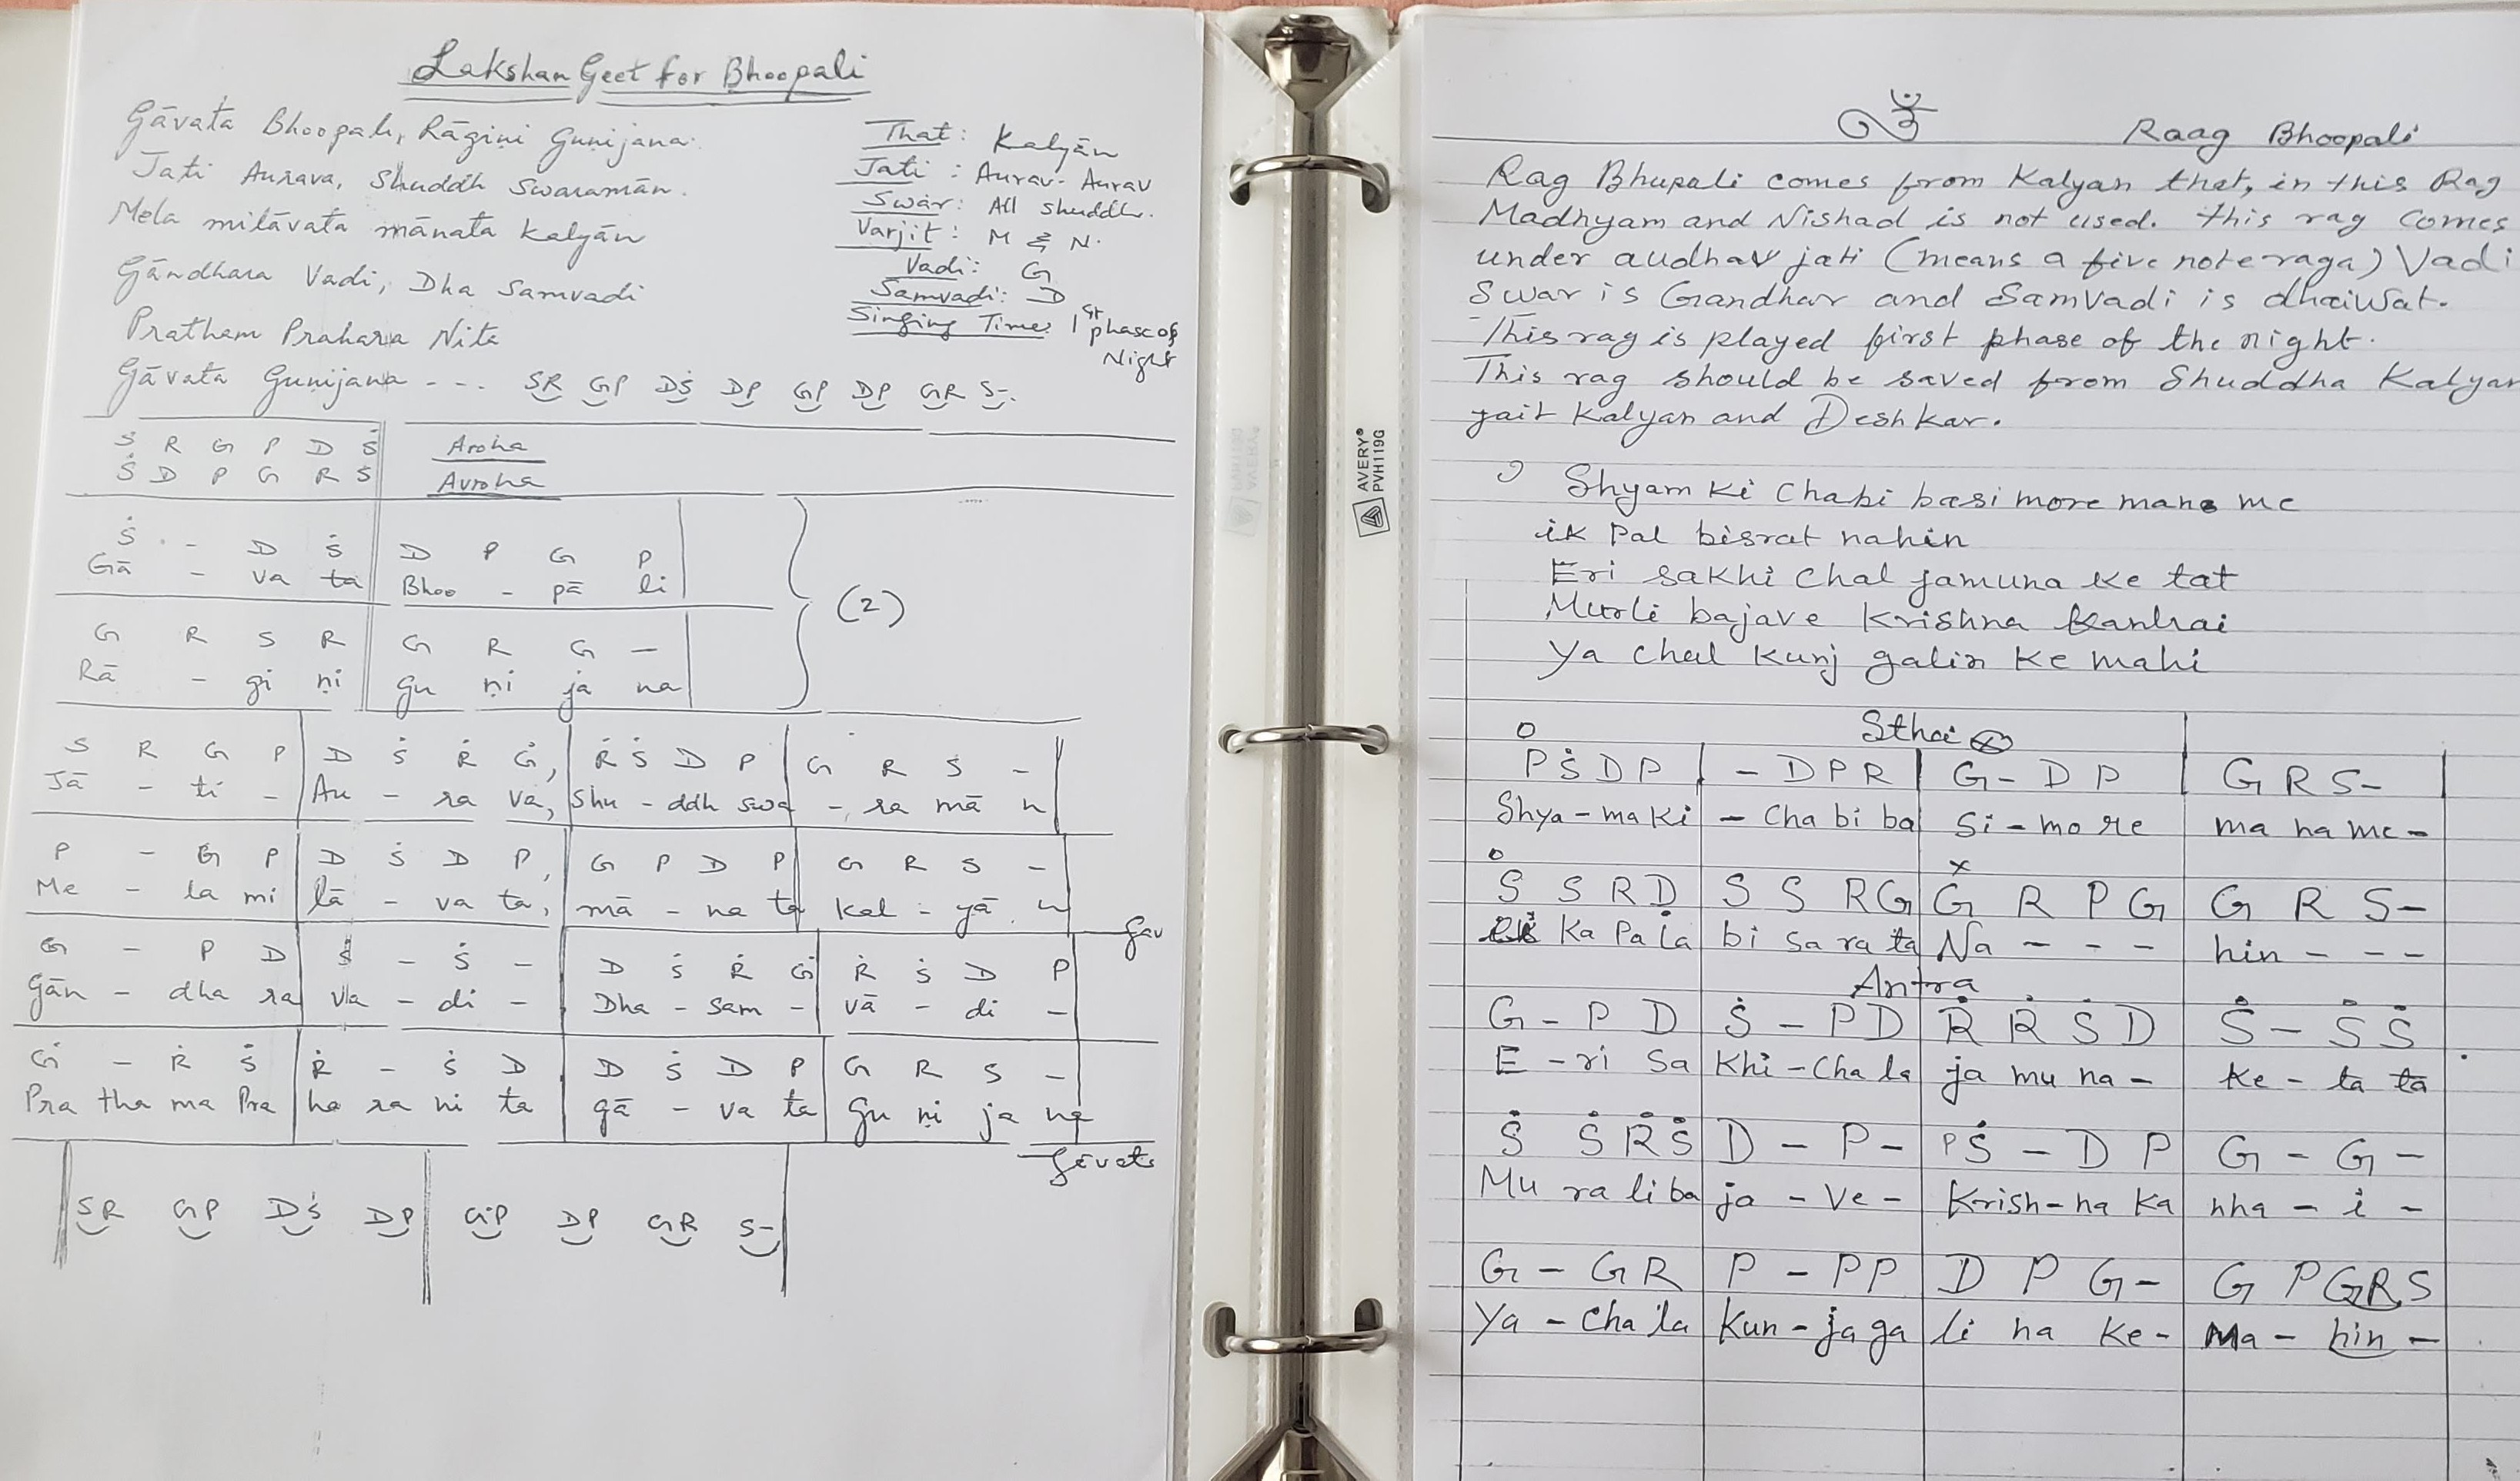 Lakshan Geet for Bhoopali
Gāvata Bhoopali, Rāgini Gunijana.
Jati Aurava, Shuddh Swaramān.
Mela milāvata mānata Kalyān
Gāndhara Vadi, Dha Samvadi
Pratham Prahara Nita
Gāvata Gunijana - - - . SR GP DṠ DP GP DP GR S-.
That: Kalyān
Jati : Aurav- Aurav
Swar: All shuddh.
Varjit: M & N.
Vadi: G
Samvadi: D
Singing Time: 1st phase of Night
S R G P D Ṡ Aroha
Ṡ D P G R S Avroha
Ṡ - D Ṡ D P G P
Gā - va ta Bhoo - pā li
(2)
G R S R G R G -
Rā - gi ṇi gu ṇi ja na
S R G P D Ṡ Ṙ Ġ, Ṙ Ṡ D P G R S -
Jā - ti - Au - ra va, Shu - ddh swa - ra mā n
P - G P D Ṡ D P, G P D P G R S -
Me - la mi lā - va ta, mā - na ta Kal - yā n
Gav
G - P D Ṡ - Ṡ - D Ṡ Ṙ Ġ Ṙ Ṡ D P
Gān - dha ra Va - di - Dha - sam - vā - di -
Ġ - Ṙ Ṡ Ṙ - Ṡ D D Ṡ D P G R S -
Pra tha ma Pra ha ra ni ta gā - va ta gu ṇi ja na
Gavata
SR GP DṠ DP GP DP GR S-
AVERY®
PVH119G
ॐ Raag Bhoopali
Rag Bhupali comes from Kalyan that, in this Rag
Madhyam and Nishad is not used. this rag comes
under audhav jati (means a five note raga) Vadi
Swar is Gandhar and Samvadi is dhaiwat.
This rag is played first phase of the night.
This rag should be saved from Shuddha Kalyan
jait Kalyan and Deshkar.
Shyam Ki Chabi basi more mana me
ik Pal bisrat nahin
Eri sakhi chal jamuna ke tat
Murli bajave Krishna Kanhai
Ya chal Kunj galin Ke mahi
o Sthai x
P Ṡ D P - D P R G - D P G R S -
Shya - ma Ki - Cha bi ba Si - mo re ma na me -
o x
S S R D S S R G G R P G G R S -
Ka Pa la bi sa ra ta Na - - - hin - - -
Antra
G - P D Ṡ - P D Ṙ Ṙ Ṡ D Ṡ - Ṡ Ṡ
E - ri Sa Khi - Cha la ja mu na - Ke - ta ta
Ṡ Ṡ Ṙ Ṡ D - P - PṠ - D P G - G -
Mu ra li ba ja - Ve - Krish - na Ka nha - i -
G - G R P - P P D P G - G P GR S
Ya - Cha la Kun - ja ga li na Ke - Ma - hin -